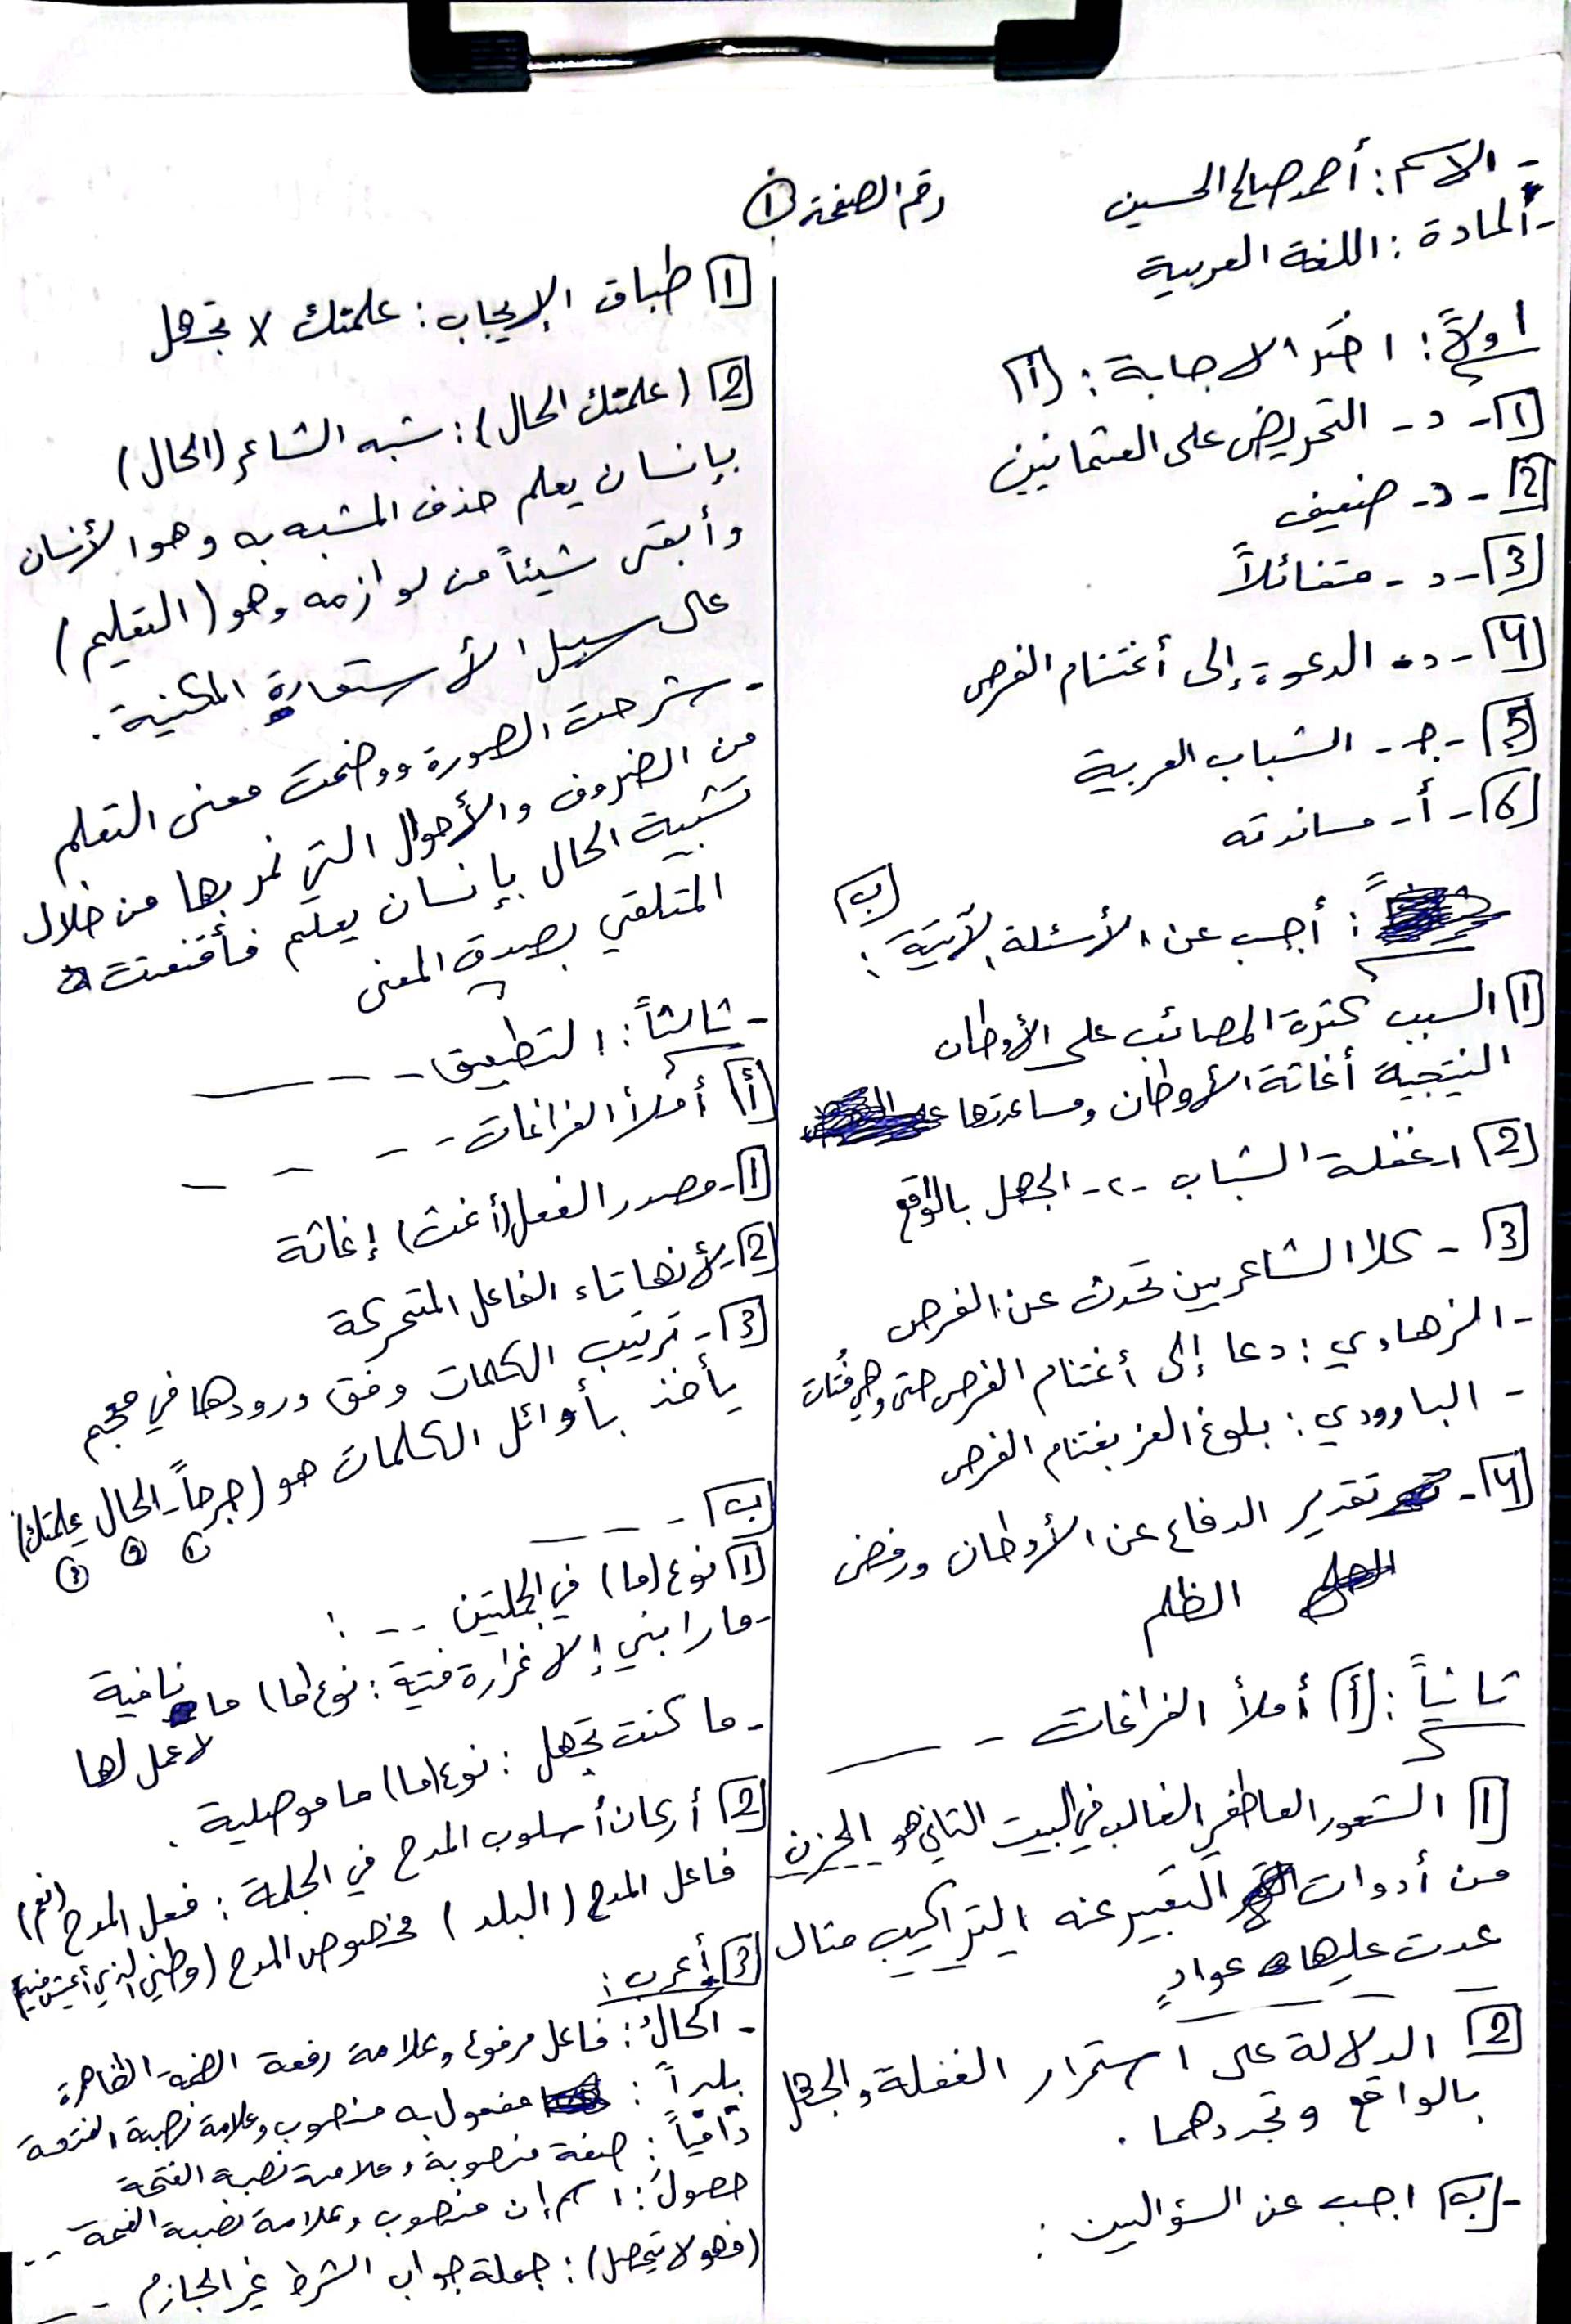 - الاسم : أحمد صالح الحسين
رقم الصفحة ①
- المادة : اللغة العربية
اولاً : اختر الاجابة : (أ)
1 - د - التحريض على العثمانيين
2 - د - ضعيف
3 - د - متفائلاً
4 - د - الدعوة إلى أغتنام الفرص
5 - جـ - الشباب العربية
6 - أ - مساندته
: أجب عن الأسئلة الآتية : (ب)
1 السبب كثرة المصائب على الأوطان
النتيجية أغاثة الأوطان ومساعدتها
2 ١- غفلة الشباب -٢- الجهل بالواقع
3 - كلا الشاعريين تحدث عن الفرص
- الزهاوي : دعا إلى أغتنام الفرص حتى وهي فُتات
- البارودي : بلوغ العز بغتنام الفرص
4 - تقدير الدفاع عن الأوطان ورفض
الظلم
ثانياً : (أ) أملأ الفراغات - ــ
1 الشعور العاطفي الغالب في البيت الثاني هو الحزن
من أدوات التعبير عنه التراكيب مثال
عدت عليها عوادٍ
2 الدلالة على استمرار الغفلة والجهل
بالواقع وتجددهما .
- ب) اجب عن السؤالين :
1 طباق الإيجاب : علمتك X تجهل
2 (علمتك الحال) : شبه الشاعر (الحال)
بإنسان يعلم حذف المشبه به وهو الأنسان
وأبقى شيئاً من لوازمه وهو (التعليم)
على سبيل الأستعارة المكنية .
- شرحت الصورة ووضحت معنى التعلم
من الضروف والأحوال التي نمر بها من خلال
تشبية الحال بإنسان يعلم فأقنعت
المتلقي بصدق المعنى
- ثالثاً : التطبيق - - ــ
أ) أملأ الفراغات - - ــ ــ
1 - مصدر الفعل (أغث) إغاثة
2 - لأنها تاء الفاعل المتحركة
3 - ترتيب الكلمات وفق ورودها في معجم
يأخذ بأوائل الكلمات هو (جرحاً - الحال علمتك)
① ② ③
ب - - - ــ
1 نوع (ما) في الجملتين - - :
- ما رابني إلا غرارة فتية : نوع (ما) ما نافية
لا عمل لها
- ما كنت تجهل : نوع (ما) ما موصلية .
2 أركان أسلوب المدح في الجملة : فعل المدح (نعم)
فاعل المدح (البلد) مخصوص المدح (وطني الذي أعيش فيه)
3 أعرب :
- الحالُ : فاعل مرفوع وعلامة رفعة الضمة الظاهرة
بلداً : مفعول به منصوب وعلامة نصبة الفتحة
دامياً : صفة منصوبة وعلامة نصبة الفتحة
حصولَ : اسم إن منصوب وعلامة نصبة الفتحة - -
(فهو لا يتحصل) : جملة جواب الشرط غير الجازم - -